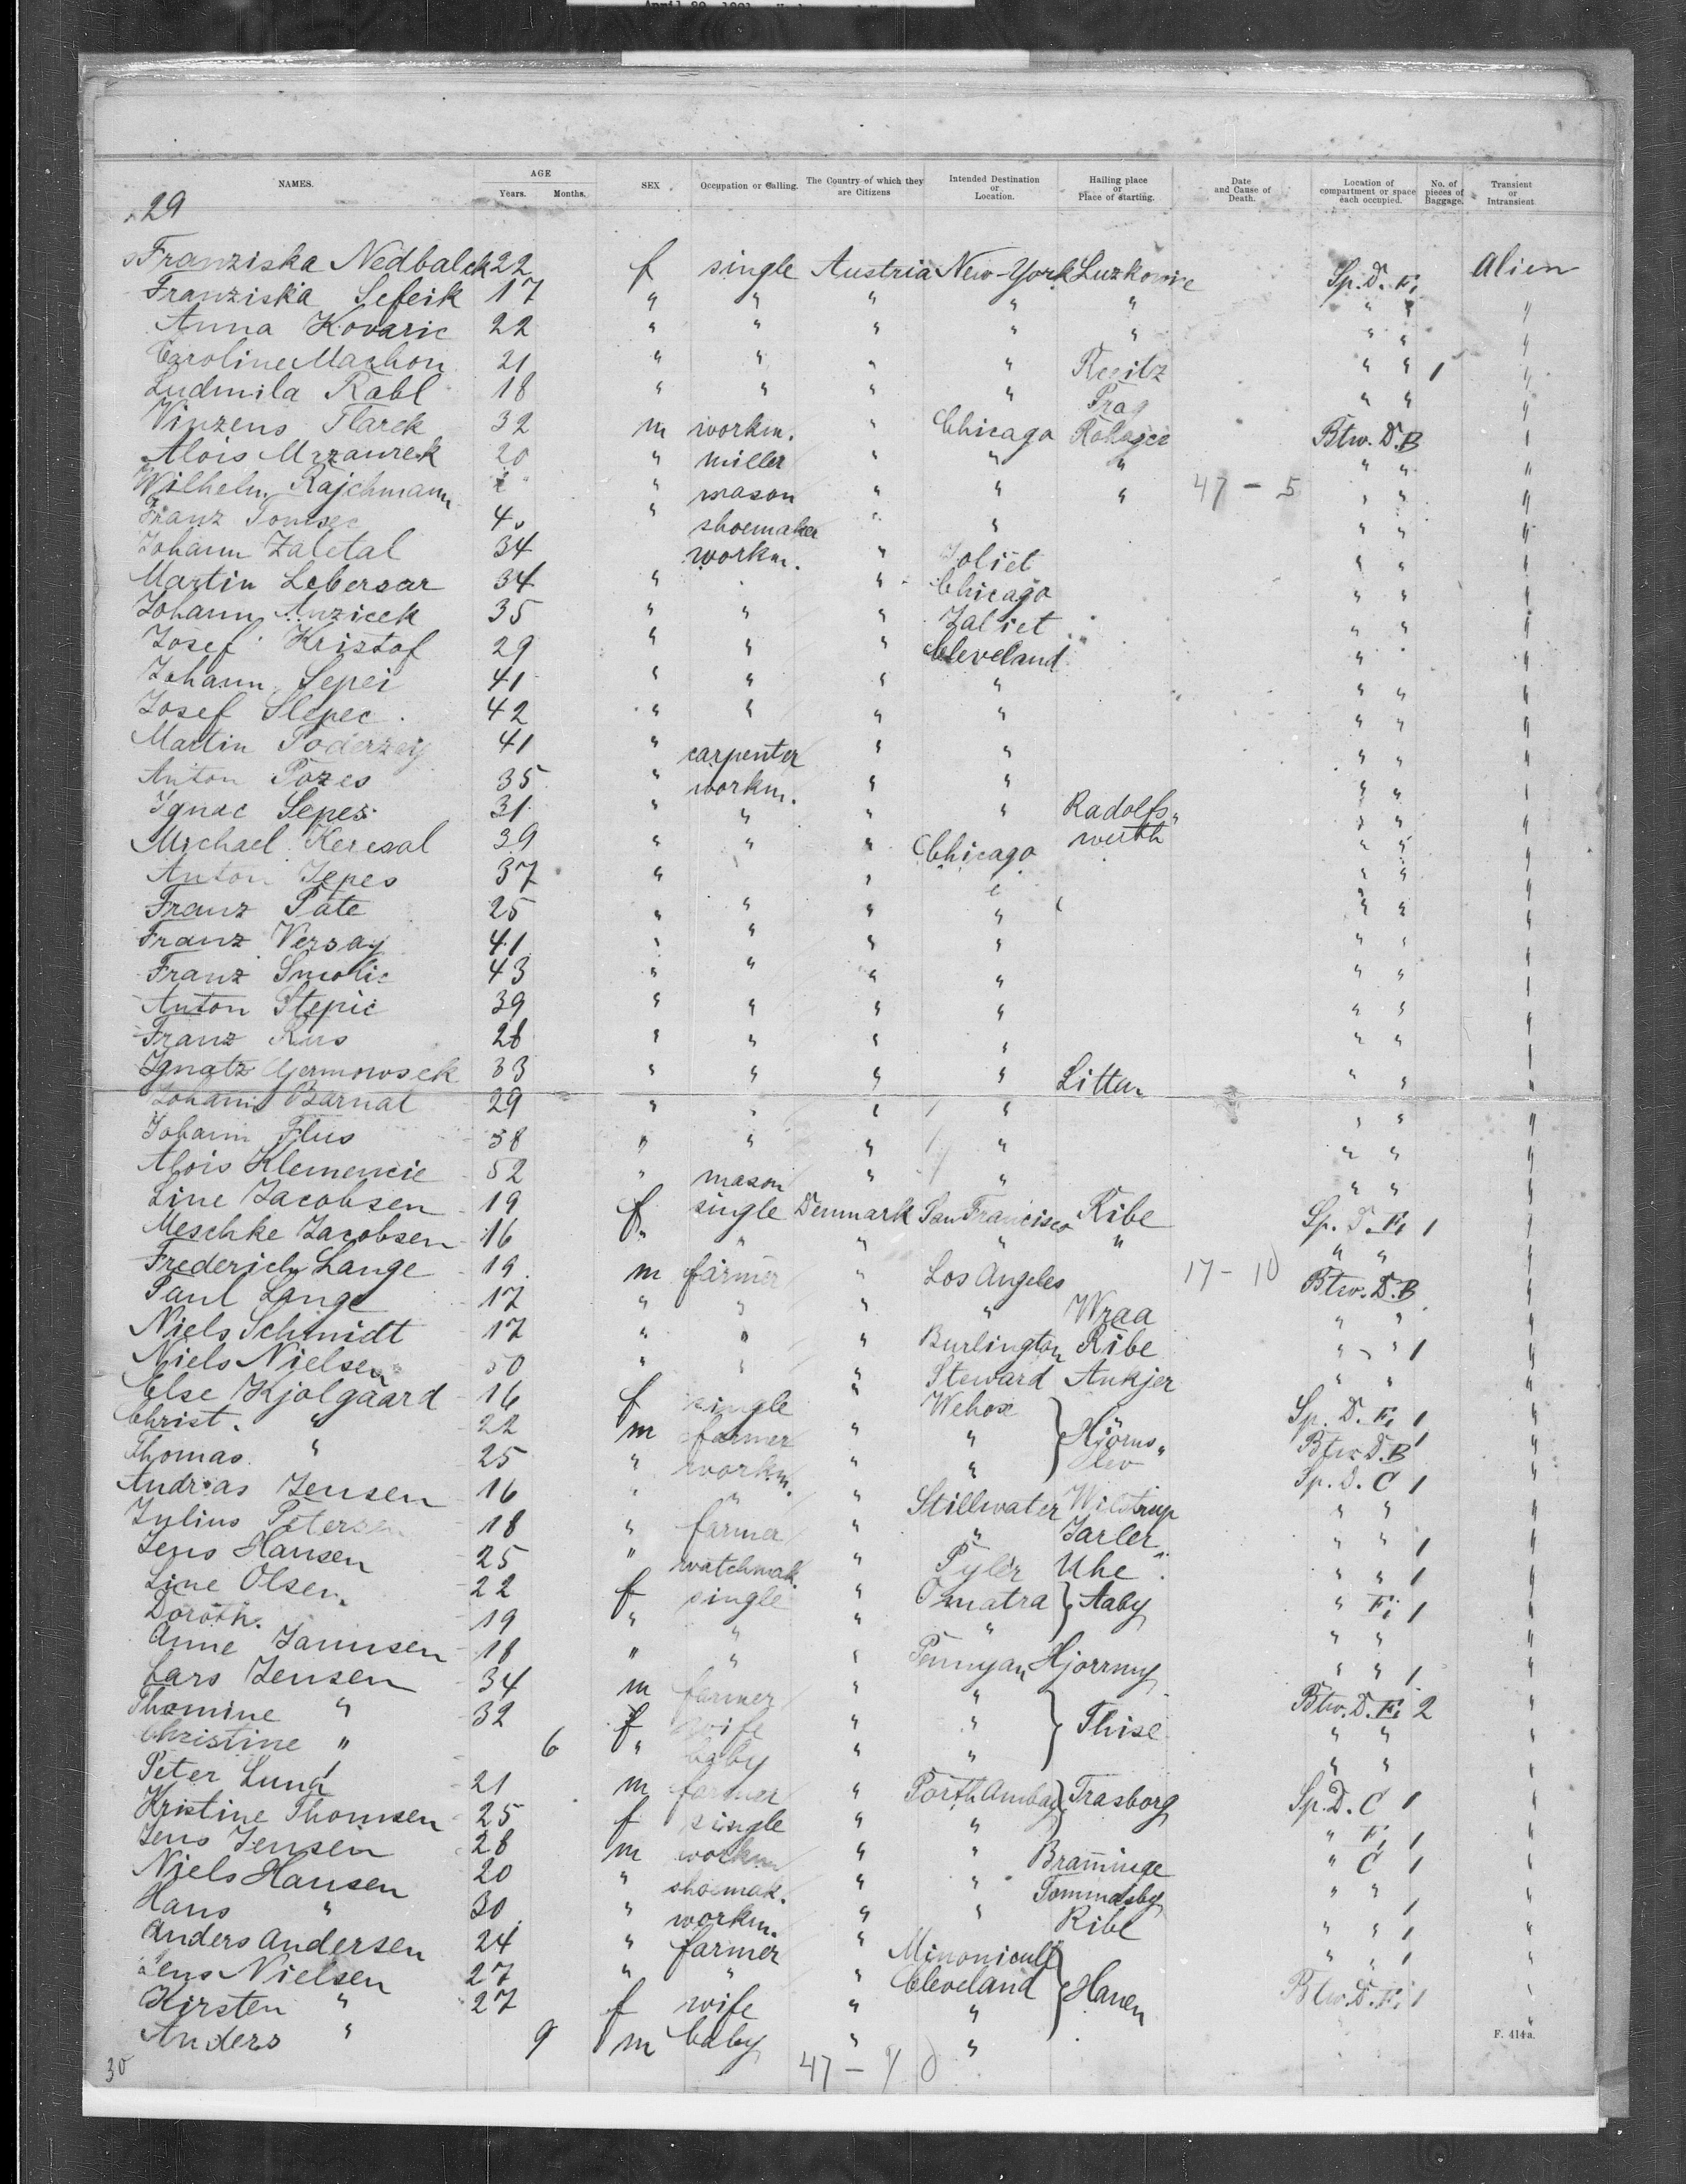 NAMES. AGE Years. Months. SEX Occupation or Calling. The Country of which they are Citizens Intended Destination or Location. Hailing place or Place of starting. Date and Cause of Death. Location of compartment or space each occupied. No. of pieces of Baggage. Transient or Intransient
29
Franziska Nedbalek 22 f single Austria New-York Luzkowic Sp. D. F. Alien
Franziska Sefcik 17 " " " " " " " "
Anna Kovaric 22 " " " " " " " "
Caroline Machon 21 " " " " " " 1 "
Ludmila Rabl 18 " " " " Prag " " "
Vinzens Flarek 32 m workm. " Chicago Btw. D. B "
Alois Mrzaurek 20 " miller " " " " " "
Wilhelm Rajchmann " mason " " " 47 - 5 " " "
Franz shoemaker " " " " "
Johann Zaletal 34 workm. " Joliet " " "
Martin Lebersar 34 " " Chicago " " "
Johann Anzicek 35 " " " Zaliet " " "
Josef Kristof 29 " " " Cleveland " "
Johann Sepei 41 " " " " " " "
Josef Slepec 42 " " " " " " "
Martin 41 " carpenter " " " " "
Anton Pozes 35 " workm. " " " " "
Ignac Sepes 31 " " " " Radolfs" " " "
Michael Keresal 39 " " " Chicago werth " " "
Anton Jepes 37 " " " " " "
Franz Pate 25 " " " " " " "
Franz Versay 41 " " " " " " "
Franz Smolic 43 " " " " " " "
Anton Stepic 39 " " " " " " "
Franz Rus 28 " " " " " " "
Ignatz Germowsek 33 " " " " Littau " " "
Johann Barnat 29 " " " " " " "
Johann Flus 38 " " " " " " "
Alois Klemencic 52 " mason " " " " "
Line Jacobsen 19 f single Denmark San Francisco Ribe Sp. D. F. 1 "
Meschke Jacobsen 16 f " " " " " " "
Frederich Lange 19 m farmer " Los Angeles 17 - 10 Btw. D. B "
Paul Lange 17 " " " " Wraa " " "
Niels Schmidt 17 " " " Burlington Ribe " " 1 "
Niels Nielsen 50 " " " Steward Ankjer " " "
Else Kjolgaard 16 f single " Wehox Sp. D. F. 1 "
Christ. " 22 m farmer " " Hjörns" Btw. D. B 1 "
Thomas " 25 " workm. " lev Sp. D. C 1 "
Andreas Jensen 16 " " " Stillwater Wilstrup " " "
Julius Petersen 18 " farmer " " Jarler " " 1 "
Jens Hansen 25 " watchmak. " Pyler Uhe " " 1 "
Line Olsen 22 f single " Omatra Aaby " F. 1 "
Doroth. 19 " " " " " " "
Anne Jannsen 18 " " " Pennyan Hjorrmy " " 1 "
Lars Jensen 34 m farmer " " Btw. D. F. 2 "
Thomine " 32 f wife " " Thise " " "
Christine " 6 " baby " " " " "
Peter Lund 21 m farmer " Porth Ambay Trasborg Sp. D. C 1 "
Kristine Thomsen 25 f single " " " F. 1 "
Jens Jensen 28 m workm " " Braminge " C 1 "
Niels Hansen 20 " shoemak. " " Tommesby " " 1 "
Hans " 30 " workm. " " Ribe " " 1 "
Anders Andersen 24 " farmer " " " 1 "
Jens Nielsen 27 " " " Cleveland Btw. D. F. 1 "
Kirsten " 27 f wife " " Haven "
Anders " 9 m baby " " F. 414a.
30 47 - 9 0